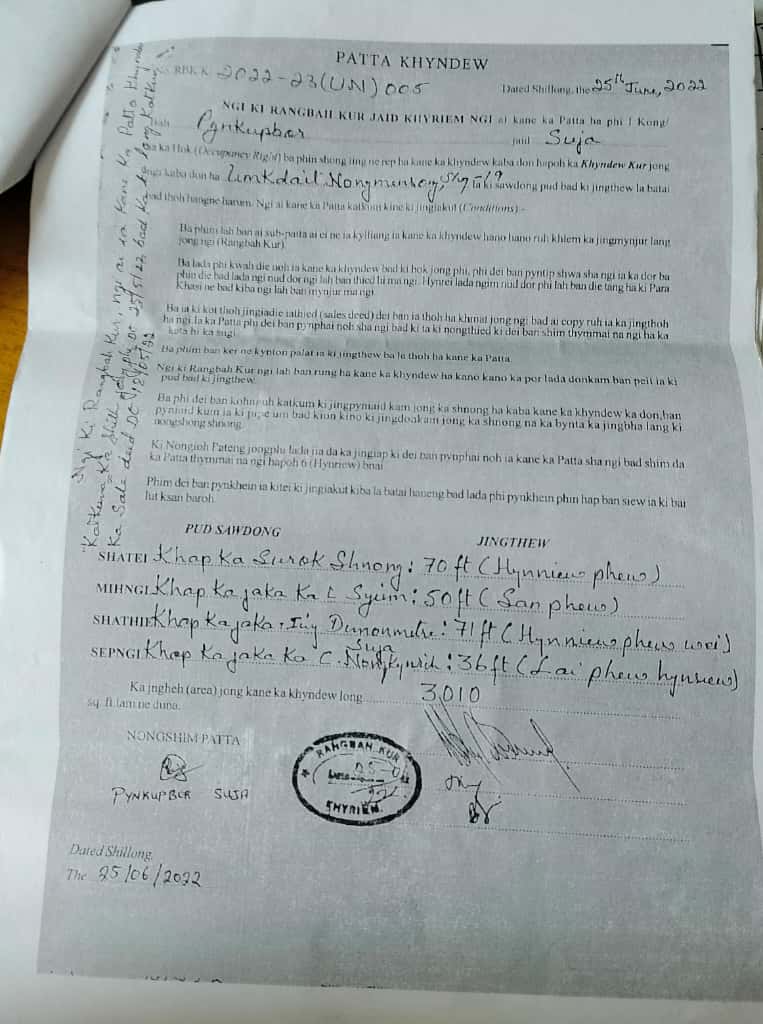 PATTA KHYNDEW
RBK K 2022-23(UN) 005
Dated Shillong, the 25th June, 2022
NGI KI RANGBAH KUR JAID KHYRIEM NGI ai kane ka Patta ha phi I Kong/
Bah Pynkupbor jaid Suja
ka Hok (Occupancy Right) ba phin shong ling ne rep ha kane ka khyndew kaba don hapoh ka Khyndew Kur jong
nga kaba don ha Umkdait Nongmensong, ia ki sawdong pud bad ki jingthew la batai
bad thoh hangne harum. Ngi ai kane ka Patta katkum kine ki jingiakut (Conditions) :-
Ba phim lah ban ai sub-patta ai ei ne ia kylliang ia kane ka khyndew hano hano ruh khlem ka jingmynjur lang
jong ngi (Rangbah Kur).
Ba lada phi kwah die noh ia kane ka khyndew bad ki hok jong phi, phi dei ban pyntip shwa sha ngi ia ka dor ba
phin die bad lada ngi nud dor ngi lah ban thied hi ma ngi. Hynrei lada ngim nud dor phi lah ban die tang ha ki Para
Khasi ne bad kiba ngi lah ban mynjur ma ngi.
Ba ia ki kot thoh jingiadie iathied (sales deed) dei ban ia thoh ha khmat jong ngi bad ai copy ruh ia ka jingthoh
ha ngi. Ia ka Patta phi dei ban pynphai noh sha ngi bad ki ta ki nongthied ki dei ban shim thymmai na ngi ha ka
kata hi ka sngi.
Ba phim ban ker ne kynton palat ia ki jingthew ba la thoh ha kane ka Patta.
Ngi ki Rangbah Kur ngi lah ban rung ha kane ka khyndew ha kano kano ka por lada donkam ban peit ia ki
pud bad ki jingthew.
Ba phi dei ban kohnguh katkum ki jingpyniaid kam jong ka shnong ha kaba kane ka khyndew ka don, ban
pyniaid kum ia ki pipe um bad kiwn kino ki jingdonkam jong ka shnong na ka bynta ka jingbha lang ki
nongshong shnong.
Ki Nongioh Pateng jongphi lada jia da ka jingiap ki dei ban pynphai noh ia kane ka Patta sha ngi bad shim da
ka Patta thymmai na ngi hapoh 6 (Hynriew) bnai
Phim dei ban pynkhein ia kitei ki jingiakut kiba la batai haneng bad lada phi pynkhein phin hap ban siew ia ki bai
lut ksan baroh.
Ngi Ki Rangbah Kur, ngi ai ia Kane Ka Patta Khyndew
Katkum Ka Sale deed
PUD SAWDONG JINGTHEW
SHATEI Khap Ka Surok Shnong : 70 ft (Hynniew phew)
MIHNGI Khap Ka jaka Ka L Syiem : 50 ft (San phew)
SHATHIE Khap Ka jaka Suja : 71 ft (Hynniew phew wei)
SEPNGI Khap Ka jaka Ka C. Nongkynrih : 36 ft (Lai phew hynriew)
Ka jngheh (area) jong kane ka khyndew long 3010
sq. ft. lam ne duna.
NONGSHIM PATTA
PYNKUPBOR SUJA
RANGBAH KUR
KHYRIEM
Dated Shillong,
The 25/06/2022